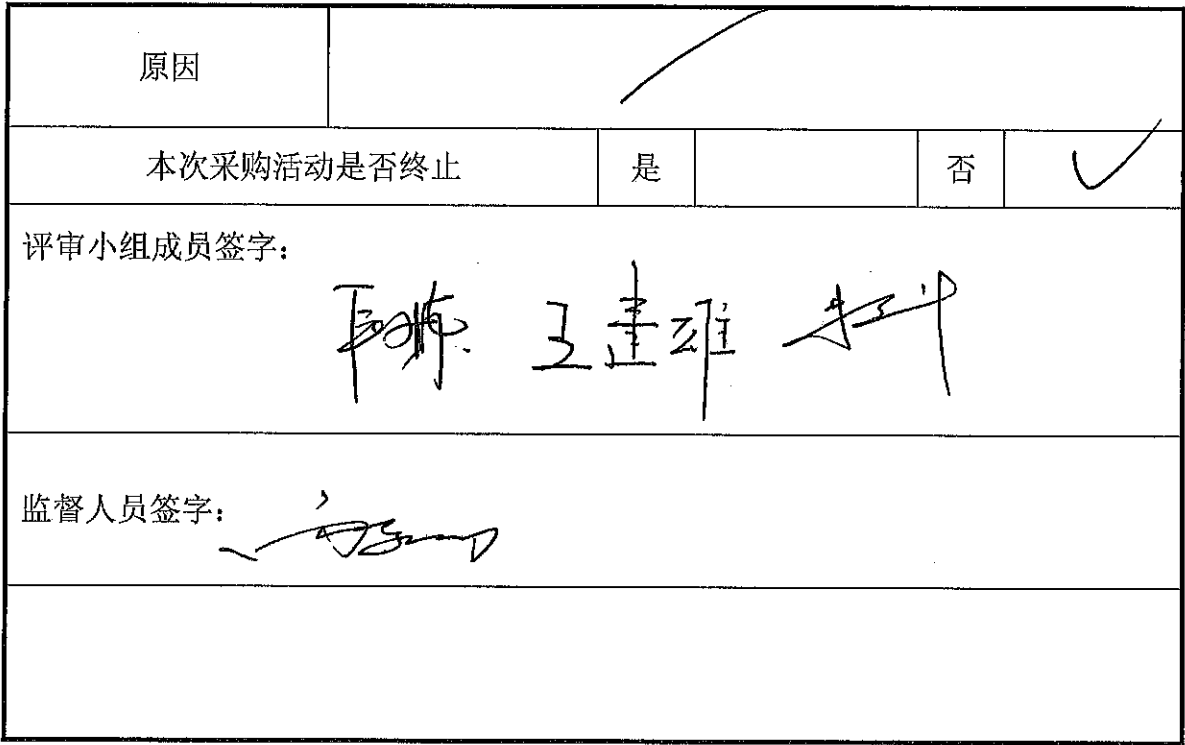 原因
本次采购活动是否终止 是 否 ✓
评审小组成员签字：
王建雄
监督人员签字：